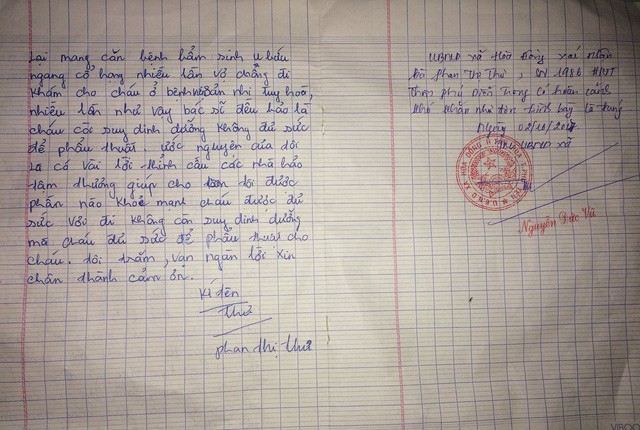 Lại mang căn bệnh bẩm sinh u bấu
ngang cổ họng nhiều lần vợ chồng đi
khám cho cháu ở bệnh viện nhi tuy hoà,
nhiều lần như vậy bác sĩ đều bảo là
cháu còi suy dinh dưỡng không đủ sức
để phẩu thuật. ước nguyện của tôi
là có vài lời thỉnh cầu các nhà hảo
tâm thương giúp cho tôi được
phần nào khoẻ mạnh cháu được đủ
sức với đi không còn suy dinh dưỡng
mà cháu đủ sức để phẩu thuật cho
cháu. tôi trăm, vạn ngàn lời xin
chân thành cảm ơn.
kí tên
Thư
phan thị thư
UBND xã Hòa Đồng xác nhận
Bà Phan Thị Thư, sn 1986 HKTT
Thôn phú Diễn Trong có hoàn cảnh
như trên trình bày là đúng
02/10/2017
TM UBND xã
Nguyễn Đức Vũ